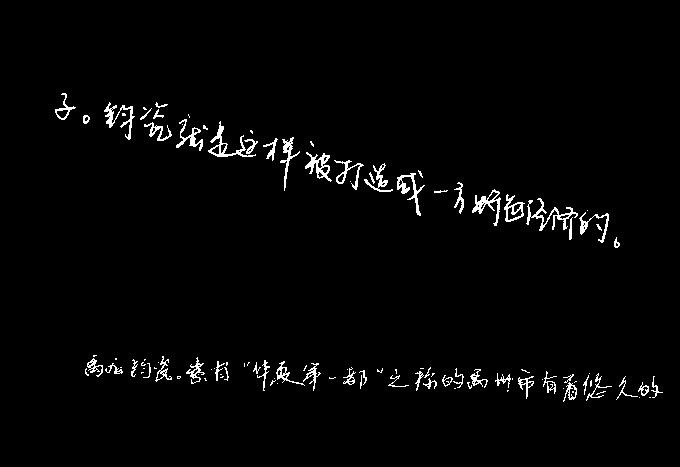 子。钧瓷就是这样被打造成一方特色经济的。
禹州钧瓷。素有“华夏第一都”之称的禹州市有着悠久的